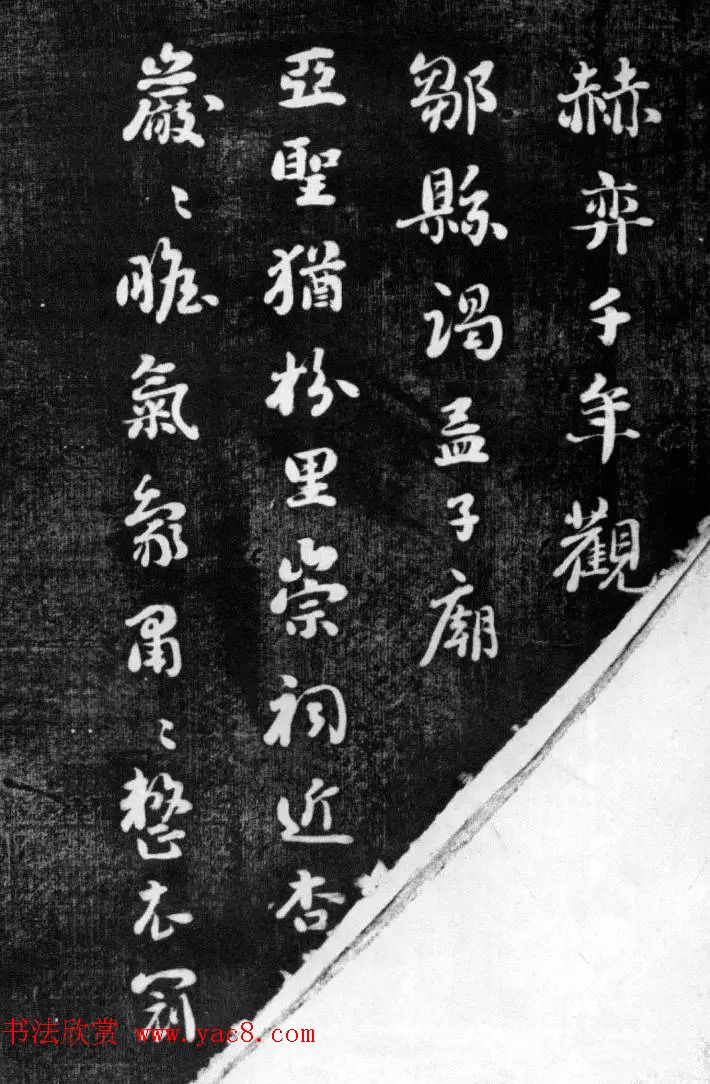 赫弈千年觀
鄒縣謁孟子廟
亞聖猶枌里崇祠近杏
巖〻瞻氣象肅〻整衣冠
书法欣赏 www.yac8.com